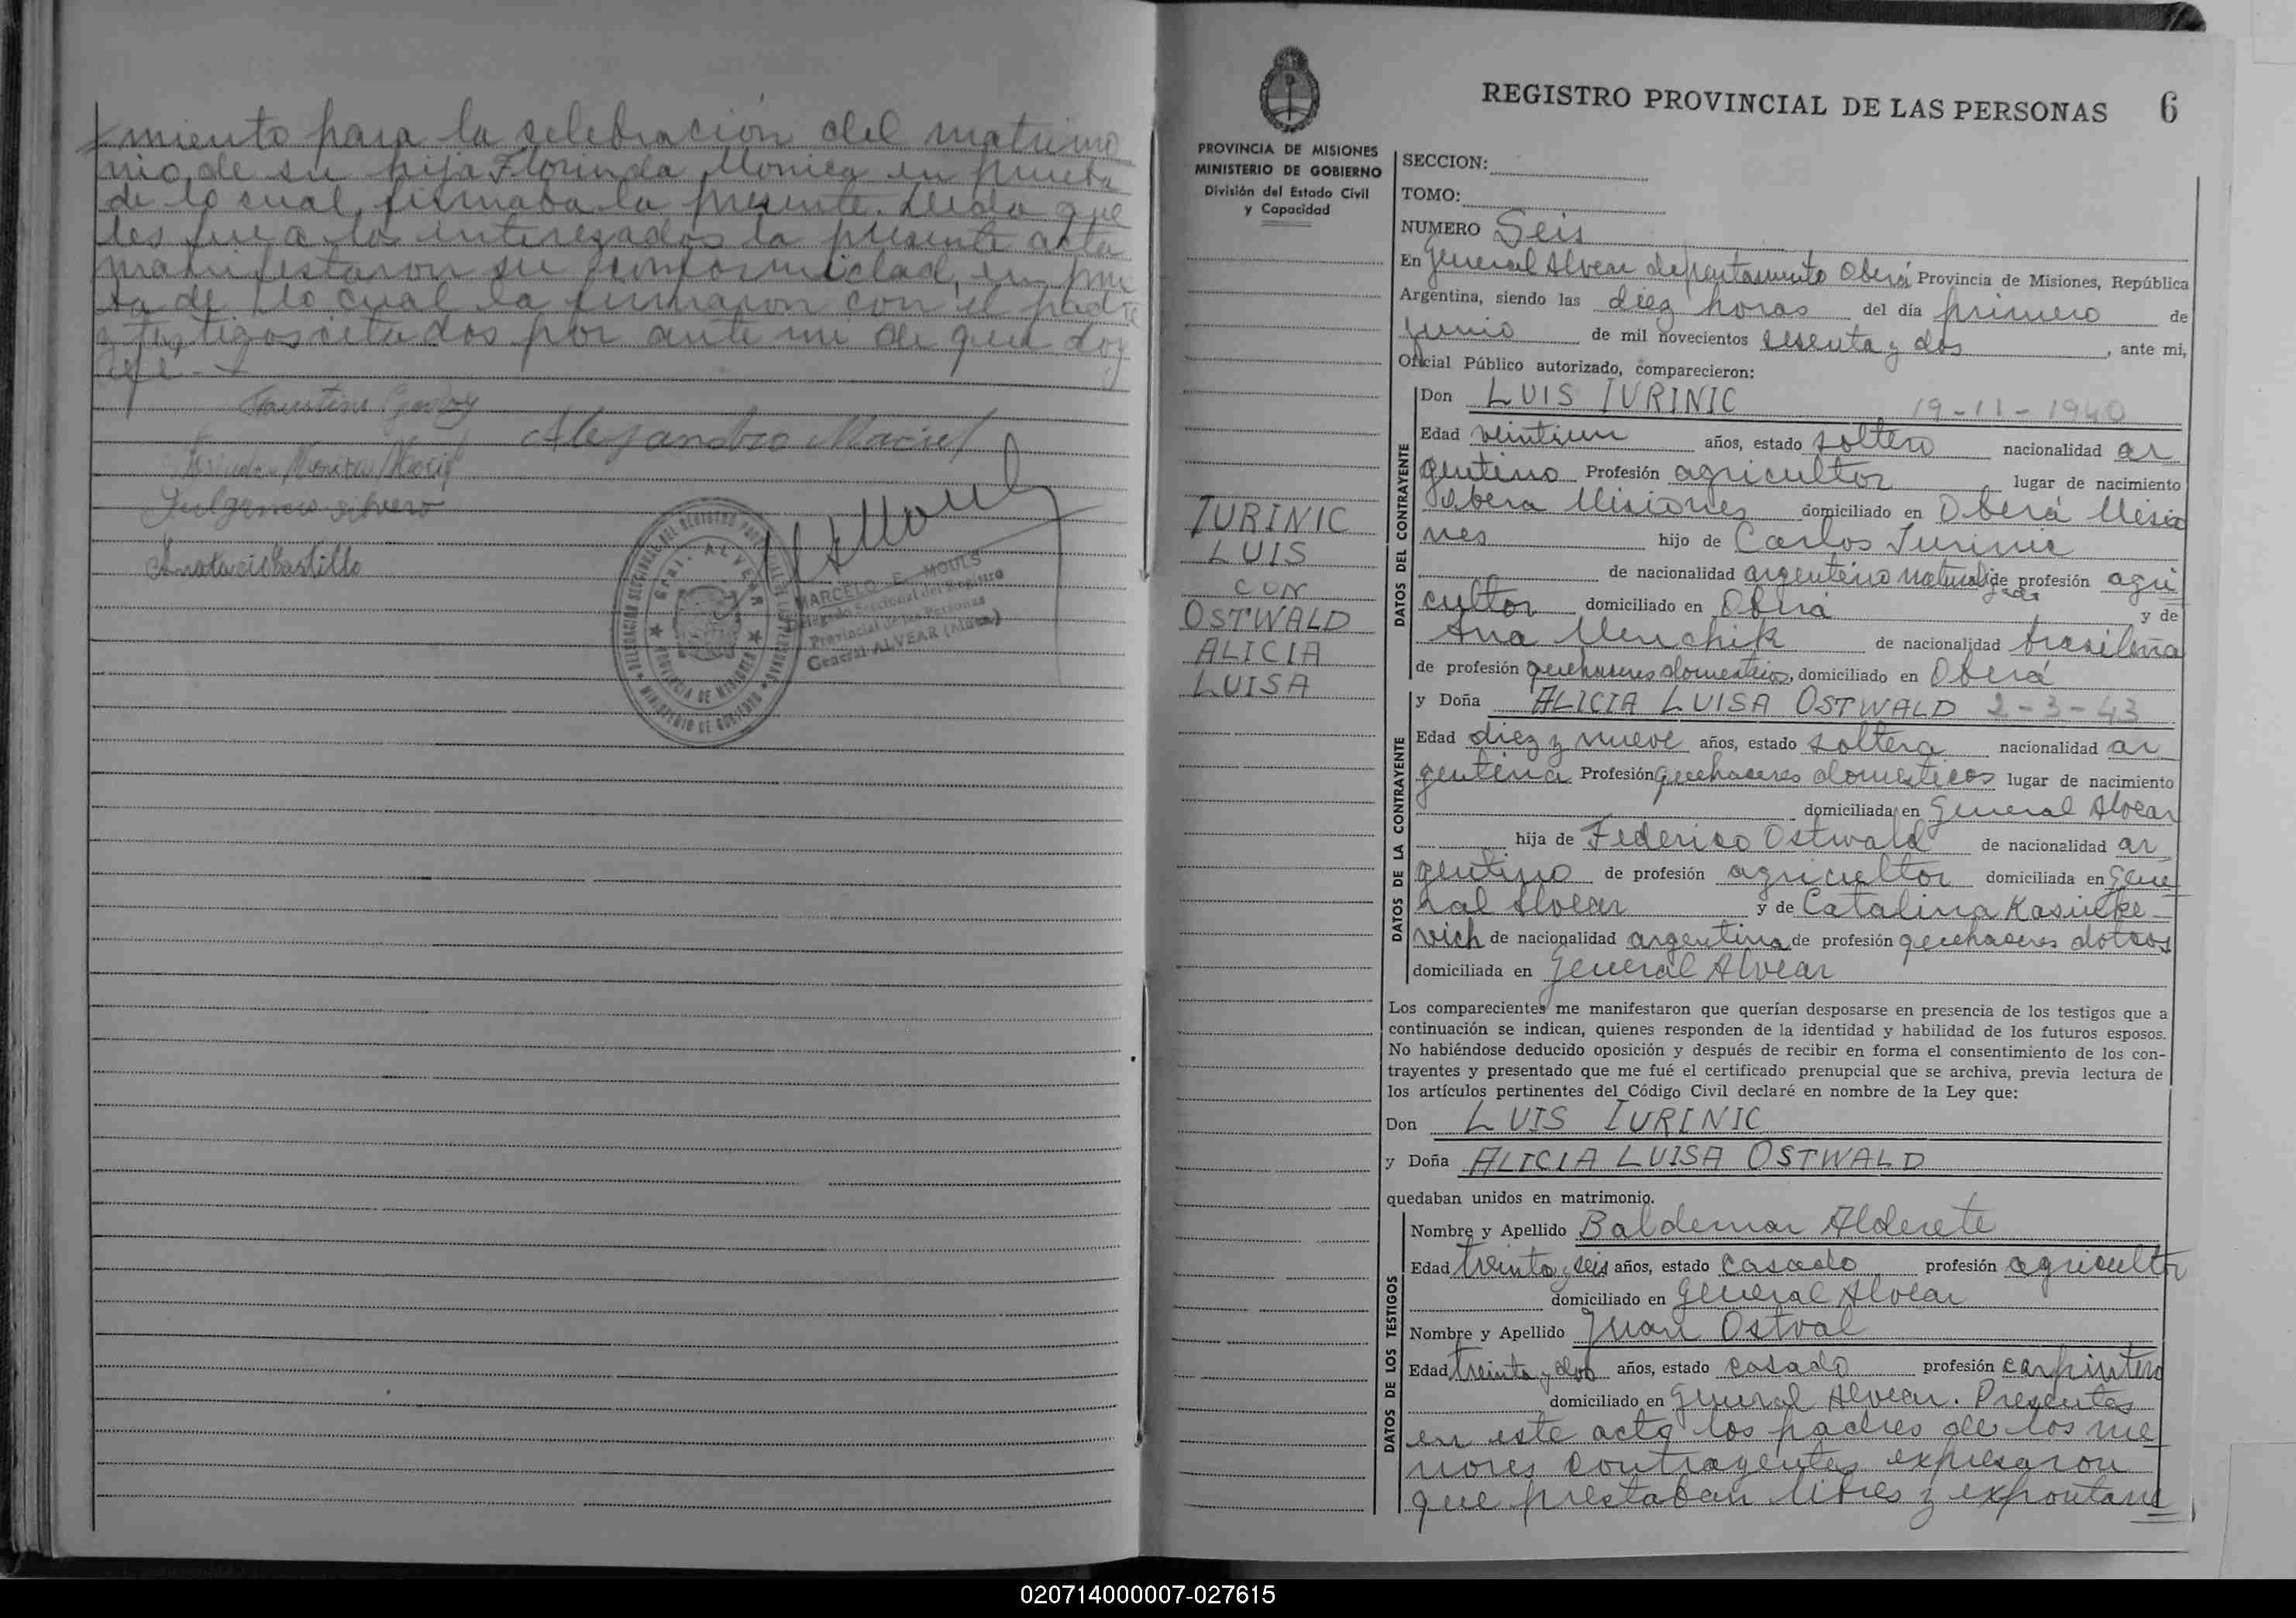 miento para la celebración del matrimo
nio de su hija Florinda Monica en prueba
de lo cual, firmaba la presente. Leida que
les fue a los interezados la presente acta
manifestaron su conformidad, en prue
ba de lo cual la firmaron con el padre
y testigos citados por ante mi de que doy
fé.-
Faustino Godoy
Alejandro Maciel
Monica Maciel
Fulgencio Silvero
Castillo
MARCELO E. MOULS
Delegado Seccional del Registro
Provincial de las Personas
General ALVEAR (Mnes.)
Gral. ALVEAR
PROVINCIA DE MISIONES
MINISTERIO DE GOBIERNO
PROVINCIA DE MISIONES
MINISTERIO DE GOBIERNO
División del Estado Civil
y Capacidad
IURINIC
LUIS
CON
OSTWALD
ALICIA
LUISA
REGISTRO PROVINCIAL DE LAS PERSONAS 6
SECCION:
TOMO:
NUMERO Seis
En General Alvear departamento Oberá Provincia de Misiones, República
Argentina, siendo las diez horas del día primero de
junio de mil novecientos sesenta y dos, ante mi,
Oficial Público autorizado, comparecieron:
DATOS DEL CONTRAYENTE
Don LUIS IURINIC 19-11-1940
Edad veintiun años, estado soltero nacionalidad ar
gentino Profesión agricultor lugar de nacimiento
Obera Misiones domiciliado en Oberá Misio
nes hijo de Carlos Iurinic
de nacionalidad argentino naturalizado de profesión agri
cultor domiciliado en Oberá y de
Ana Menchik de nacionalidad brasileña
de profesión quehaceres domesticos, domiciliado en Oberá
DATOS DE LA CONTRAYENTE
y Doña ALICIA LUISA OSTWALD 2-3-43
Edad diez y nueve años, estado soltera nacionalidad ar
gentina Profesión quehaceres domesticos lugar de nacimiento
domiciliada en General Alvear
hija de Federico Ostwald de nacionalidad ar
gentino de profesión agricultor domiciliada en Gene
ral Alvear y de Catalina Kasiuke-
vich de nacionalidad argentina de profesión quehaceres dotcos
domiciliada en General Alvear
Los comparecientes me manifestaron que querían desposarse en presencia de los testigos que a
continuación se indican, quienes responden de la identidad y habilidad de los futuros esposos.
No habiéndose deducido oposición y después de recibir en forma el consentimiento de los con-
trayentes y presentado que me fué el certificado prenupcial que se archiva, previa lectura de
los artículos pertinentes del Código Civil declaré en nombre de la Ley que:
Don LUIS IURINIC
y Doña ALICIA LUISA OSTWALD
quedaban unidos en matrimonio.
DATOS DE LOS TESTIGOS
Nombre y Apellido Baldemar Alderete
Edad treinta y seis años, estado casado profesión agricultor
domiciliado en General Alvear
Nombre y Apellido Juan Ostval
Edad treinta y dos años, estado casado profesión carpintero
domiciliado en General Alvear. Presentes
en este acto los padres de los me
nores contrayentes expresaron
que prestaban libres y expontane
020714000007-027615